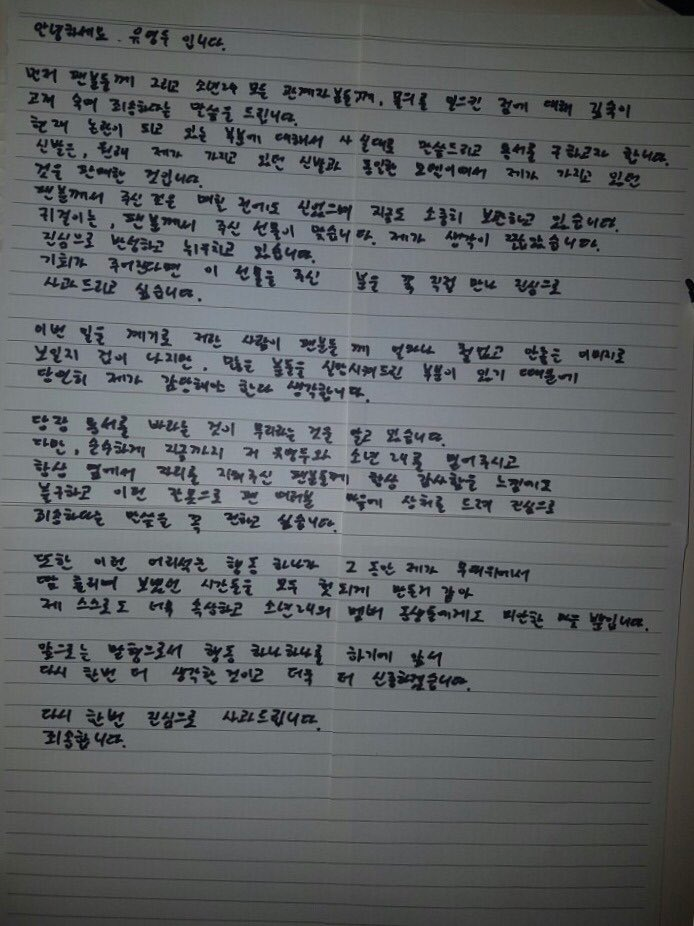 안녕하세요. 유영두 입니다.
먼저 팬분들께 그리고 소년24 모든 관계자분들께, 물의를 일으킨 점에 대해 깊숙이
고개 숙여 죄송하다는 말씀을 드립니다.
현재 논란이 되고 있는 부분에 대해서 사실대로 말씀드리고 용서를 구하고자 합니다.
신발은, 원래 제가 가지고 있던 신발과 동일한 모델이여서 제가 가지고 있던
것을 판매한 것입니다.
팬분께서 주신 것은 매칭 전에도 신었으며 지금도 소중히 보관하고 있습니다.
귀걸이는, 팬분께서 주신 선물이 맞습니다. 제가 생각이 짧았습니다.
진심으로 반성하고 뉘우치고 있습니다.
기회가 주어진다면 이 선물을 주신 분을 꼭 직접 만나 진심으로
사과드리고 싶습니다.
이번 일을 계기로 저란 사람이 팬분들께 얼마나 철없고 안좋은 이미지로
보일지 겁이 나지만, 많은 분들을 실망시켜드린 부분이 있기 때문에
당연히 제가 감당해야 한다 생각합니다.
당장 용서를 바라는 것이 무리라는 것을 알고 있습니다.
다만, 순수하게 지금까지 저 유영두와 소년24를 믿어주시고
항상 옆에서 자리를 지켜주신 팬분들께 항상 감사함을 느낌에도
불구하고 이런 잘못으로 팬 여러분 마음에 상처를 드려 진심으로
죄송하다는 말씀을 꼭 전하고 싶습니다.
또한 이런 어리석은 행동 하나가 그 동안 제가 무대위에서
땀 흘리며 보냈던 시간들을 모두 헛되게 만든거 같아
제 스스로도 너무 속상하고 소년24의 멤버 동생들에게도 미안한 마음 뿐입니다.
앞으로는 맏형으로서 행동 하나하나를 하기에 앞서
다시 한번 더 생각할 것이고 더욱 더 신중하겠습니다.
다시 한번 진심으로 사과드립니다.
죄송합니다.